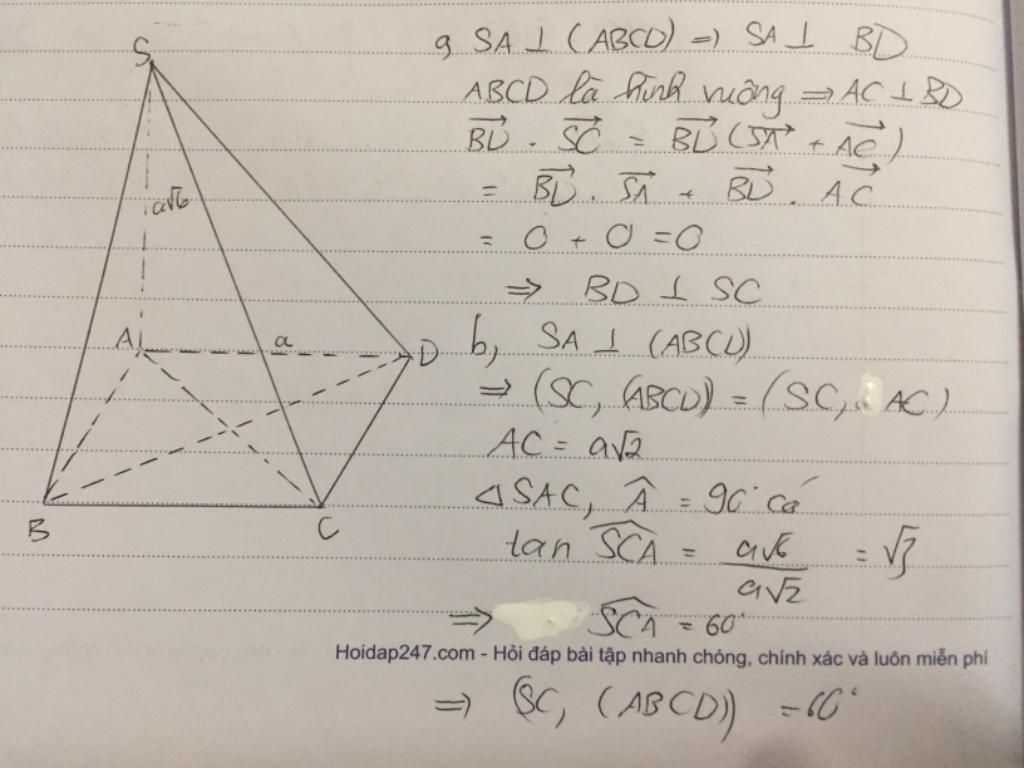 S
a√6
A
a
D
B
C
a, SA ⊥ (ABCD) => SA ⊥ BD
ABCD là hình vuông => AC ⊥ BD
$\overrightarrow{BD} . \overrightarrow{SC} = \overrightarrow{BD} (\overrightarrow{SA} + \overrightarrow{AC})$
$= \overrightarrow{BD} . \overrightarrow{SA} + \overrightarrow{BD} . \overrightarrow{AC}$
= 0 + 0 = 0
=> BD ⊥ SC
b, SA ⊥ (ABCD)
=> (SC, (ABCD)) = (SC, AC)
AC = a√2
$\triangle SAC, \widehat{A} = 90°$ có
$\tan \widehat{SCA} = \frac{a\sqrt{6}}{a\sqrt{2}} = \sqrt{3}$
=> $\widehat{SCA} = 60°$
Hoidap247.com - Hỏi đáp bài tập nhanh chóng, chính xác và luôn miễn phí
=> (SC, (ABCD)) = 60°